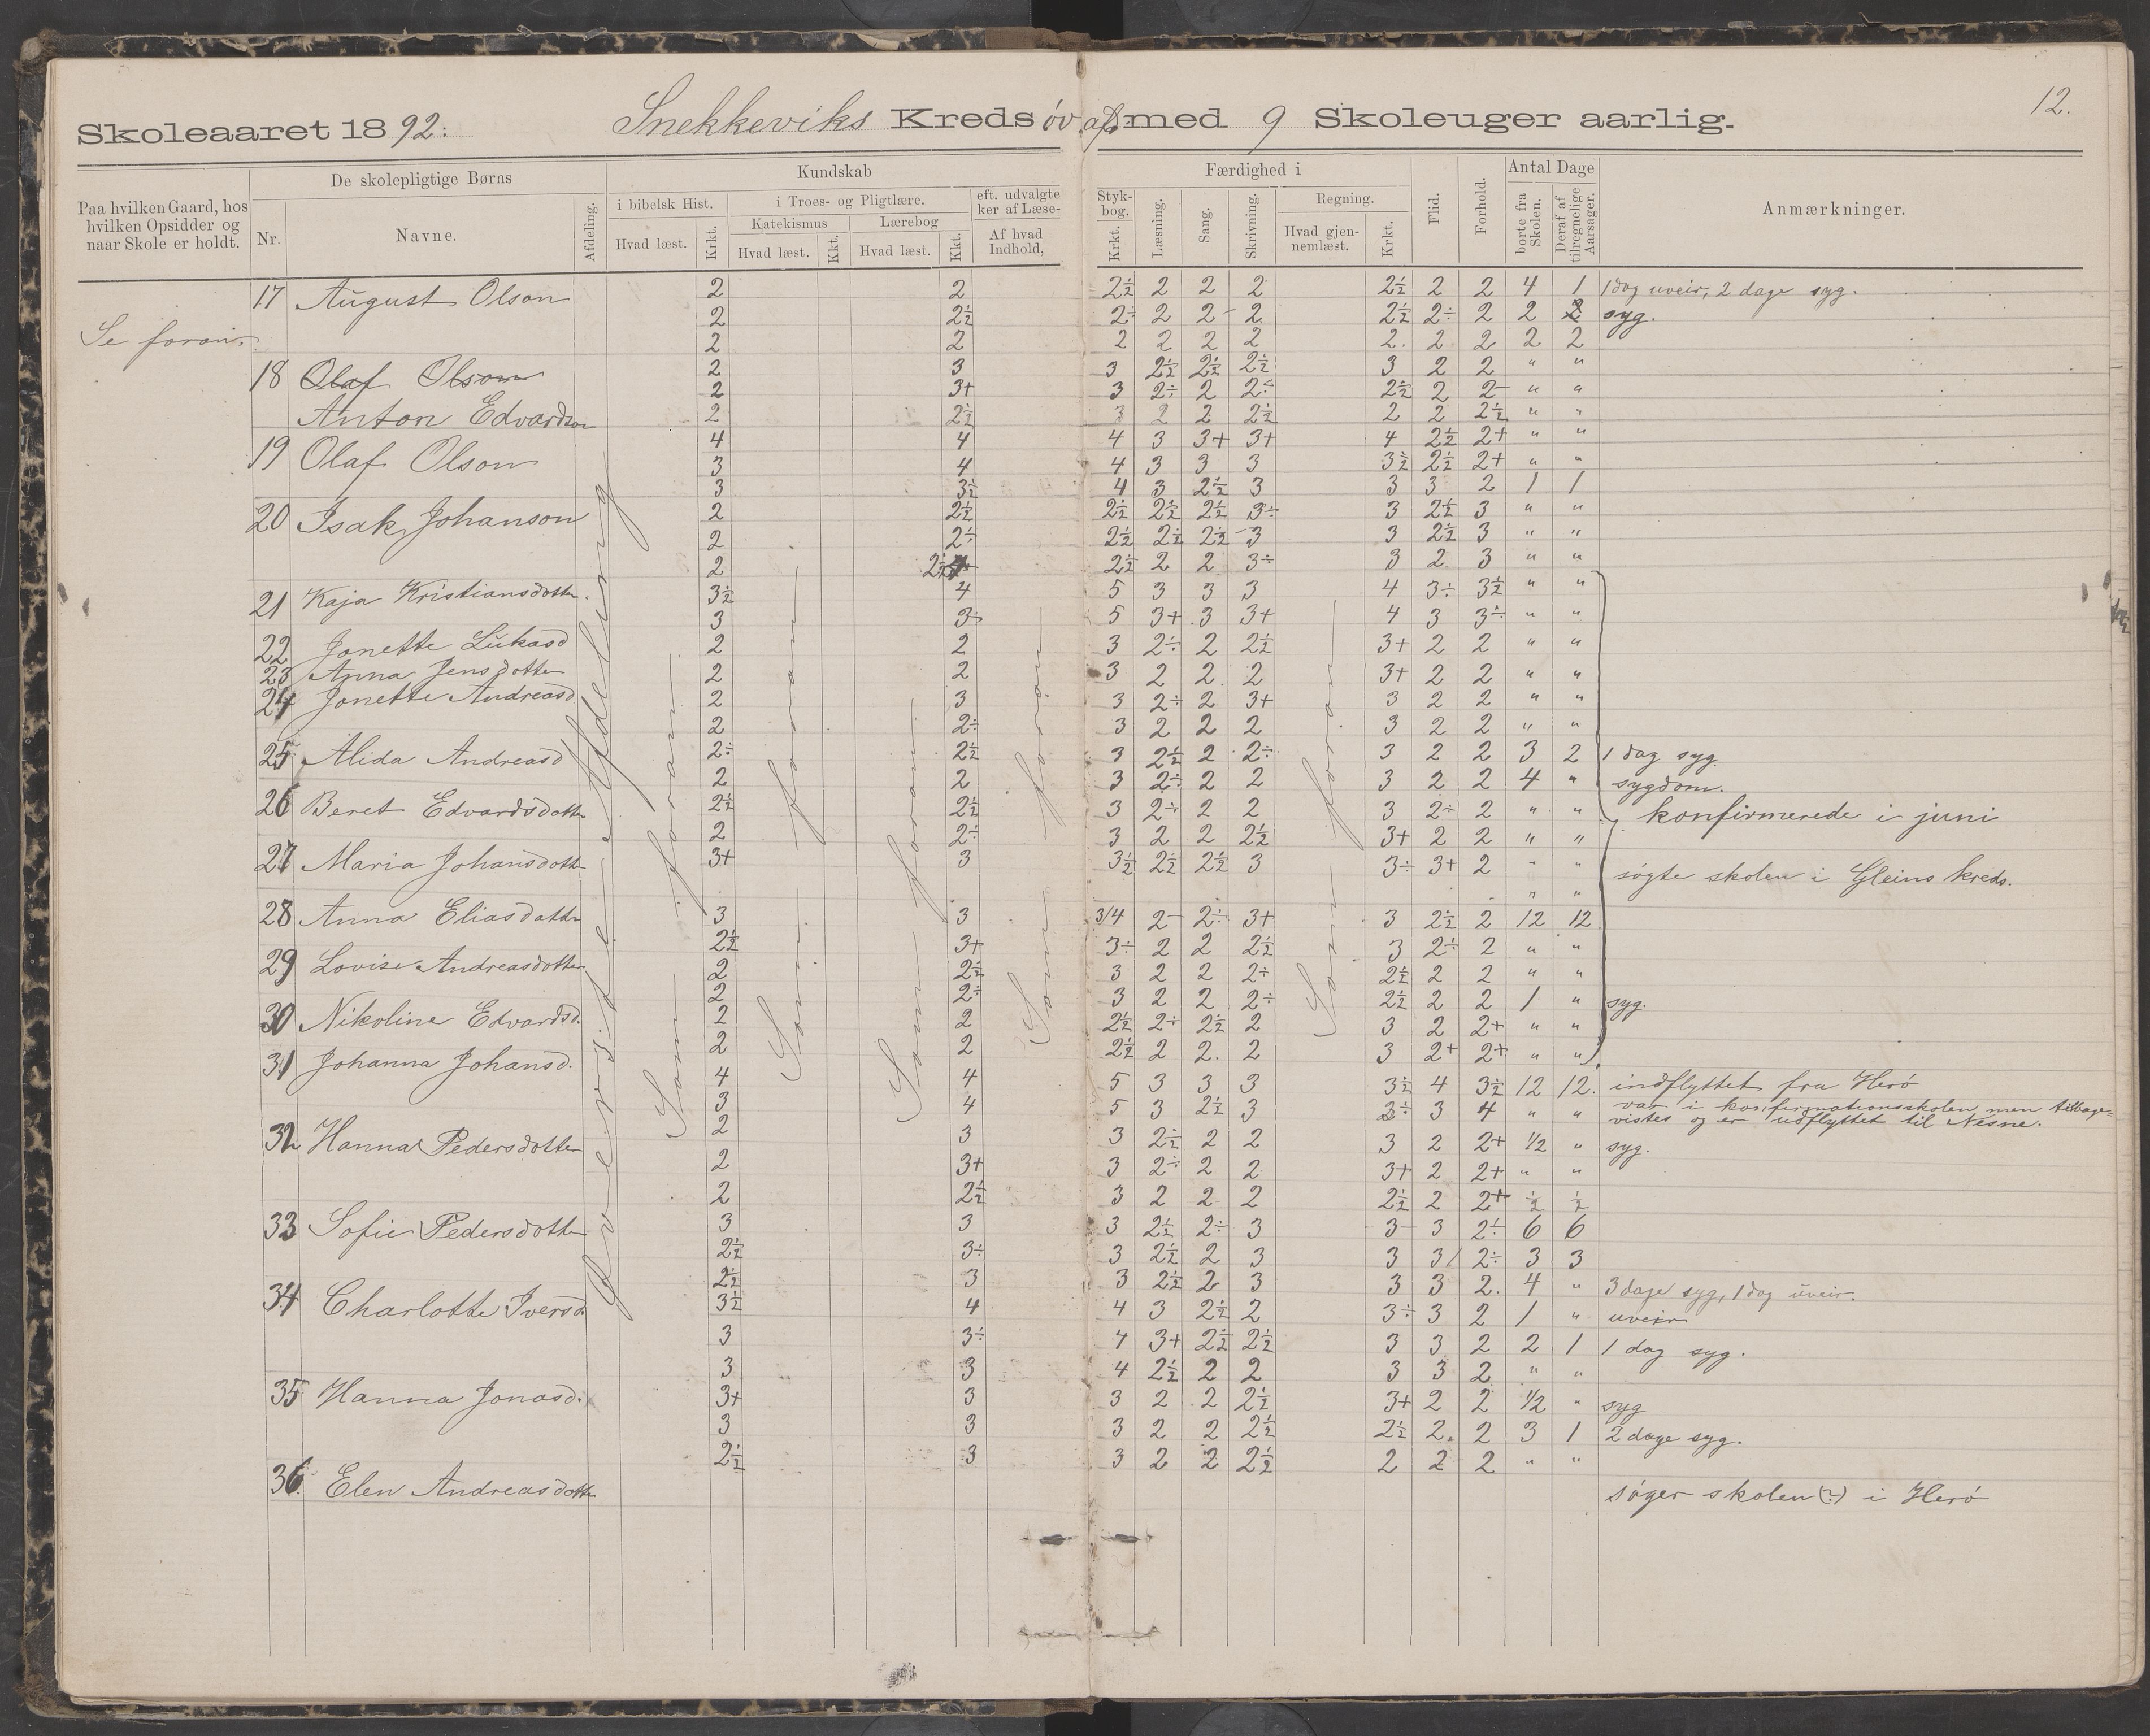 12.
Skoleaaret 1892. Snekkeviks Kreds öv. afd. med 9 Skoleuger aarlig.
Paa hvilken Gaard, hos hvilken Opsidder og naar Skole er holdt.
De skolepligtige Børns
Nr. Navne. Afdeling.
Kundskab
i bibelsk Hist. i Troes- og Pligtlære. eft. udvalgte
Katekismus Lærebog ker af Læse-
Hvad læst. Krkt. Hvad læst. Kkt. Hvad læst. Kkt. Af hvad Indhold,
Færdighed i
Styk-bog. Krkt. Læsning. Sang. Skrivning. Regning. Hvad gjen-nemlæst. Krkt.
Flid. Forhold. Antal Dage borte fra Skolen. Deraf af tilregnelige Aarsager.
Anmærkninger.
Se foran.
Øverste Afdeling
Som foran
Som foran
Som foran
Som foran
Som foran
17 August Olson 2 2 2½ 2 2 2 2½ 2 2 4 1 1 dag uveir, 2 dage syg.
2 2½ 2÷ 2 2 2 2½ 2÷ 2 2 syg.
2 2 2 2 2 2 2. 2 2 2 2
18 Olaf Olson 2 3 3 2½ 2½ 2½ 3 2 2 " "
2 3+ 3 2÷ 2 2÷ 2½ 2 2 " "
Anton Edvardson 2 2½ 3 2 2 2½ 2 2 2½ " "
19 Olaf Olson 4 4 4 3 3+ 3+ 4 2½ 2+ " "
3 4 4 3 3 3 3½ 2½ 2+ " "
3 3½ 4 3 2½ 3 3 3 2 1 1
20 Isak Johanson 2 2½ 2½ 2½ 2½ 3÷ 3 2½ 3 " "
2 2÷ 2½ 2½ 2½ 3 3 2½ 3 " "
2 2½ 2½ 2 2 3÷ 3 2 3 " "
21 Kaja Kristiansdotter. 3½ 4 5 3 3 3 4 3÷ 3½ " "
3 3÷ 5 3+ 3 3+ 4 3 3÷ " "
22 Jonette Lukasd 2 2 3 2÷ 2 2½ 3+ 2 2 " "
23 Anna Jensdotter 2 2 3 2 2 2 3+ 2 2 " "
24 Jonette Andreasd 2 3 3 2÷ 2 3+ 3 2 2 " "
2 2÷ 3 2 2 2 3 2 2 " "
25 Alida Andreasd 2÷ 2½ 3 2½ 2 2÷ 3 2 2 3 2 1 dag syg.
2 2 3 2÷ 2 2 3 2 2 4 " sygdom.
26 Beret Edvardsdotter 2½ 2½ 3 2÷ 2 2 3 2÷ 2 " " konfirmerede i juni
2 2÷ 3 2 2 2½ 3+ 2 2 " "
27 Maria Johansdotter 3+ 3 3½ 2½ 2½ 3 3÷ 3+ 2 " " søgte skolen i Gleins kreds.
" "
28 Anna Eliasdotter 3 3 3/4 2- 2÷ 3+ 3 2½ 2 12 12
2½ 3+ 3÷ 2 2 2½ 3 2÷ 2 " "
29 Lovise Andreasdotter 2 2½ 3 2 2 2÷ 2½ 2 2 " "
2 2÷ 3 2 2 2÷ 2½ 2 2 1 " syg.
30 Nikoline Edvardsd. 2 2 2½ 2÷ 2½ 2 3 2 2+ " "
2 2 2½ 2 2. 2 3 2+ 2+ " "
31 Johanna Johansd. 4 4 5 3 3 3 3½ 4 3½ 12 12. indflyttet fra Herö
3 4 5 3 2½ 3 3÷ 3 4 " " var i konfirmationsskolen men tilbage=
vistes og er udflyttet til Nesne.
32 Hanna Pedersdotter 2 3 3 2½ 2 2 3 2 2+ 1/2 " syg.
2 3+ 3 2÷ 2 2 3+ 2 2+ " "
2 2½ 3 2 2 2 2½ 2 2+ ½ ½
33 Sofie Pedersdotter 3 3 3 2½ 2÷ 3 3- 3 2÷ 6 6
2½ 3÷ 3 2½ 2 3 3 3/ 2÷ 3 3
2½ 3 3 2½ 2 3 3 3 2. 4 " 3 dage syg, 1 dag uveir.
34 Charlotte Iversd. 3½ 4 4 3 2½ 2 3÷ 3 2 1 " uveir
3 3÷ 4 3+ 2½ 2½ 3 3 2 2 1 1 dag syg.
3 3 4 2½ 2 2 3 3 2 " "
35 Hanna Jonasd. 3+ 3 3 2 2 2½ 3+ 2 2 1/2 " syg
3 3 3 2 2 2½ 2½ 2. 2 3 1 2 dage syg.
2½ 3 3 2 2 2½ 2 2 2 " "
36. Elen Andreasdotter søger skolen (?) i Herö